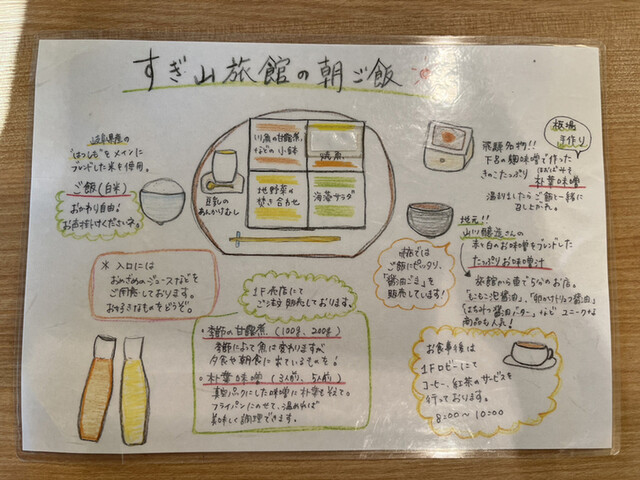 すぎ山旅館の朝ご飯
岐阜県産の
"はつしも"をメインに
ブレンドした米を使用。
ご飯(白米)
おかわり自由!
お声掛けくださいネ。
川魚の甘露煮
などの小鉢
焼魚
豆乳の
あんかけむし
地野菜の
焚き合わせ
海藻サラダ
板場
手作り
飛騨名物!!
下呂の麹味噌で作った
きのこたっぷり
ほおばみそ
朴葉味噌
温まりましたらご飯と一緒に
召し上がれ。
地元!!
山川醸造さんの
赤と白のお味噌をブレンドした
たっぷりお味噌汁
旅館から車で5分のお店。
「ももこ泥醤油」、「卵のトリュフ醤油」
「はちみつ醤油バター」など ユニークな
商品も人気!
当館では
ご飯にピッタリ、
「醤油ごま」を
販売しています!
※ 入口には
おめざめのジュースなどを
ご用意しております。
お好きなものをどうぞ。
1F売店にて
ご注文販売しております。
・季節の甘露煮(100g、200g)
季節によって魚は変わりますが
夕食や朝食に出ているものを!
・朴葉味噌(3人前、5人前)
真空パックにした味噌に朴葉を添えて。
フライパンにのせて、温めれば
美味しく調理できます。
お食事後は
1Fロビーにて
コーヒー、紅茶のサービスを
行っております。
8:00~10:00